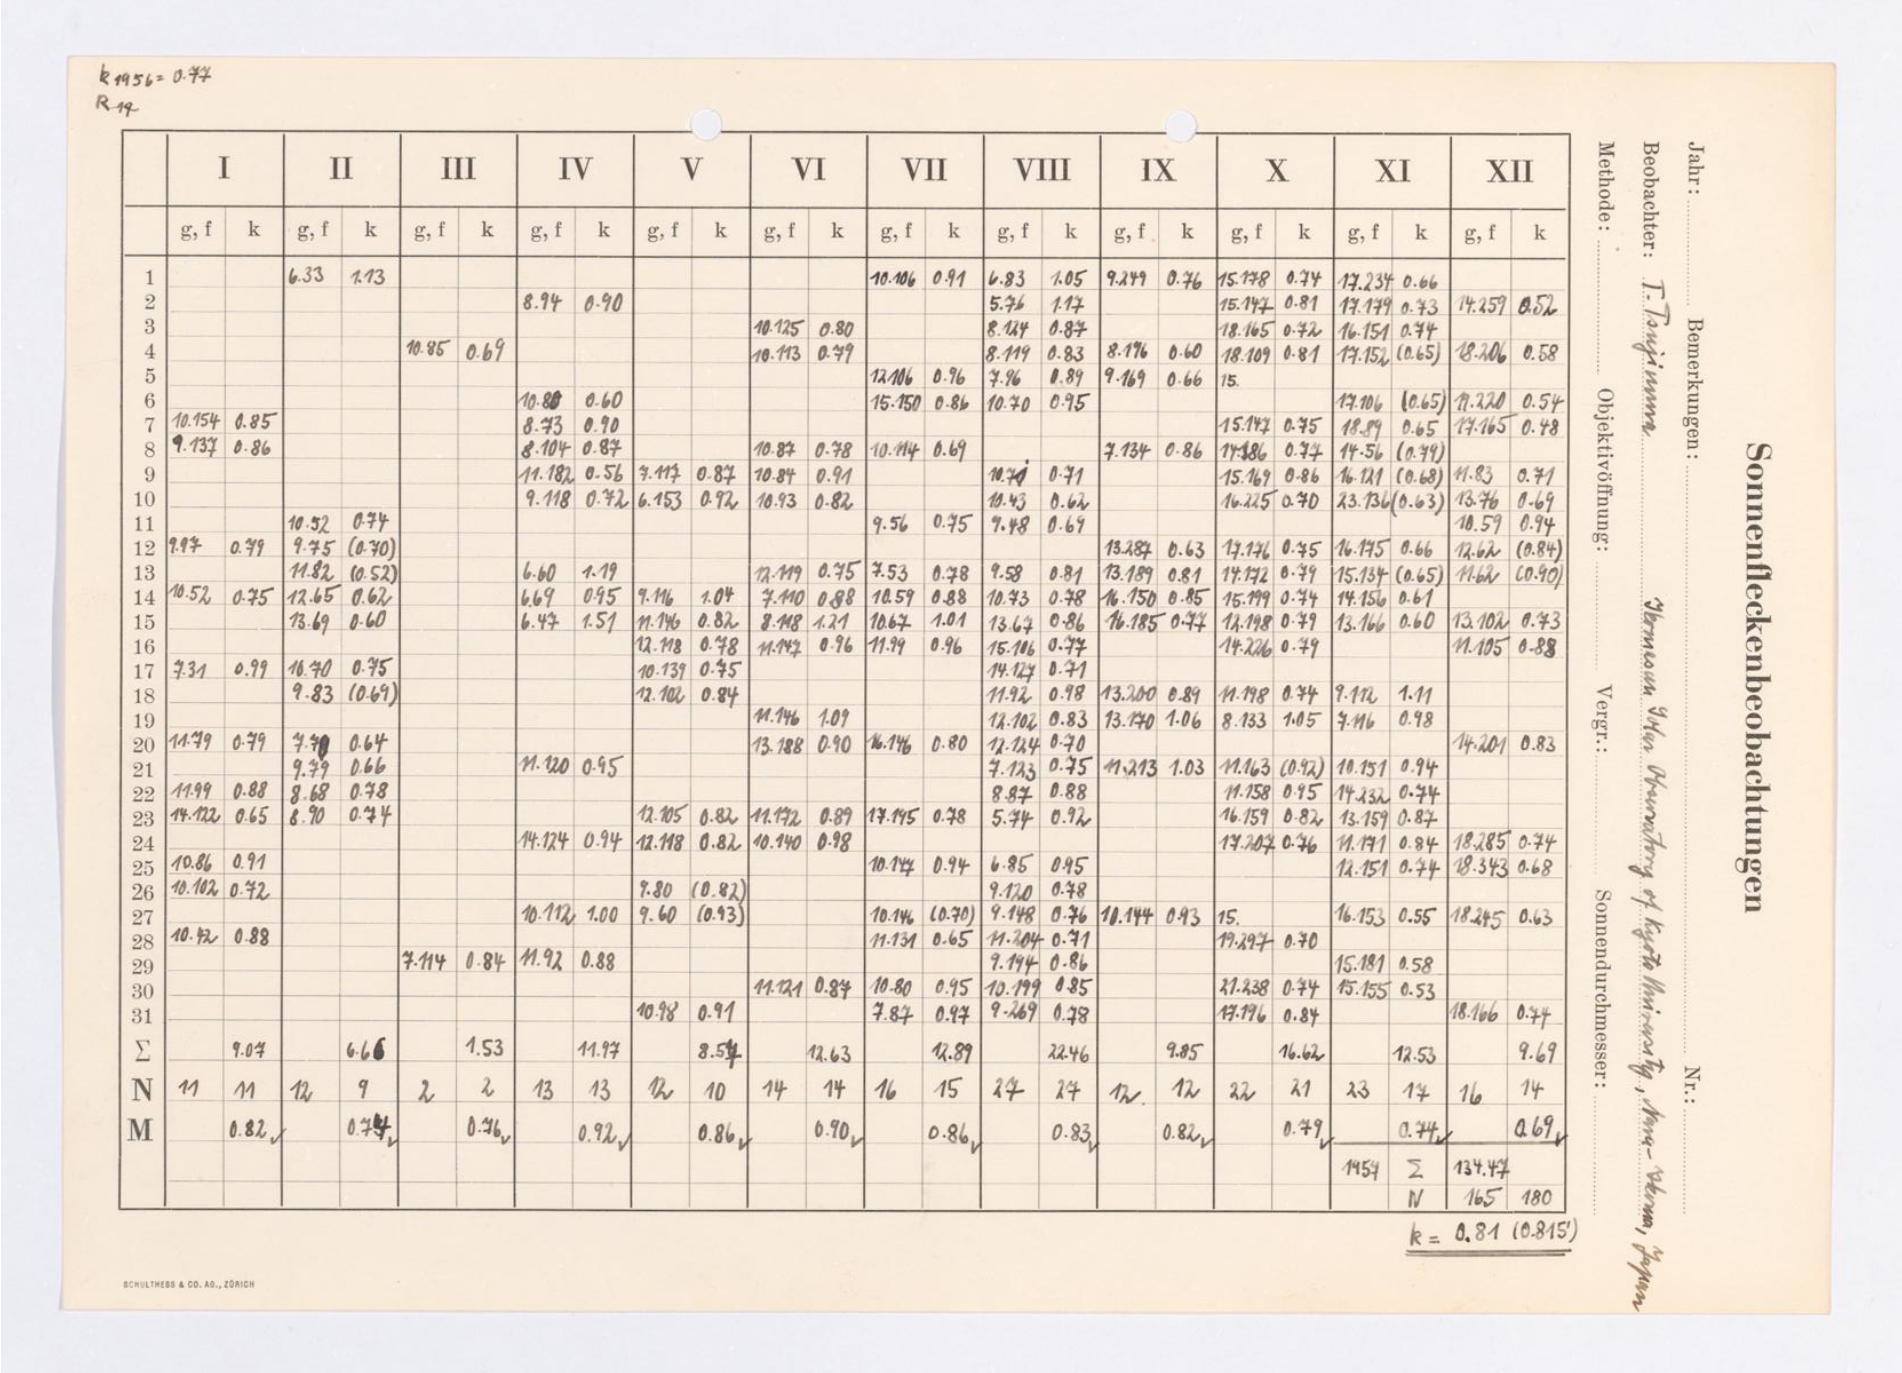 k 1956 = 0.77
R 19
I II III IV V VI VII VIII IX X XI XII
g, f k g, f k g, f k g, f k g, f k g, f k g, f k g, f k g, f k g, f k g, f k g, f k
1 6.33 1.13 10.106 0.91 6.83 1.05 9.249 0.76 15.178 0.74 17.234 0.66
2 8.94 0.90 5.76 1.17 15.147 0.81 17.179 0.73 14.259 0.52
3 10.125 0.80 8.124 0.87 18.165 0.72 16.151 0.74
4 10.85 0.69 10.113 0.79 8.119 0.83 8.176 0.60 18.109 0.81 17.152 (0.65) 18.206 0.58
5 12.106 0.96 7.96 0.89 9.169 0.66 15.
6 10.80 0.60 15.150 0.86 10.70 0.95 17.106 (0.65) 11.220 0.54
7 10.154 0.85 8.73 0.90 15.147 0.75 18.89 0.65 17.165 0.48
8 9.137 0.86 8.104 0.87 10.87 0.78 10.114 0.69 7.134 0.86 14.186 0.77 14.56 (0.79)
9 11.182 0.56 7.117 0.87 10.84 0.91 10.71 0.71 15.169 0.86 16.121 (0.68) 11.83 0.71
10 9.118 0.72 6.153 0.92 10.93 0.82 10.43 0.62 16.225 0.70 23.136 (0.63) 13.76 0.69
11 10.52 0.74 9.56 0.75 9.48 0.69 10.59 0.94
12 9.97 0.79 9.75 (0.70) 13.287 0.63 17.176 0.75 16.175 0.66 12.62 (0.84)
13 11.82 (0.52) 6.60 1.19 12.119 0.75 7.53 0.78 9.58 0.81 13.189 0.81 14.172 0.79 15.134 (0.65) 11.62 (0.90)
14 10.52 0.75 12.65 0.62 6.69 0.95 9.116 1.04 7.110 0.88 10.59 0.88 10.73 0.78 16.150 0.85 15.199 0.74 14.156 0.61
15 13.69 0.60 6.47 1.51 11.146 0.82 8.118 1.21 10.67 1.01 13.67 0.86 16.185 0.77 12.198 0.79 13.166 0.60 13.102 0.73
16 12.118 0.78 11.147 0.96 11.99 0.96 15.106 0.77 14.226 0.79 11.105 0.88
17 7.31 0.99 10.70 0.75 10.139 0.75 14.127 0.71
18 9.83 (0.69) 12.102 0.84 11.92 0.98 13.200 0.89 11.198 0.74 9.112 1.11
19 11.146 1.09 12.102 0.83 13.170 1.06 8.133 1.05 7.116 0.98
20 11.79 0.79 7.70 0.64 13.188 0.90 16.146 0.80 12.124 0.70 14.201 0.83
21 9.79 0.66 11.120 0.95 7.123 0.75 11.213 1.03 11.163 (0.92) 10.151 0.94
22 11.99 0.88 8.68 0.78 8.87 0.88 11.158 0.95 14.232 0.74
23 14.122 0.65 8.90 0.74 12.105 0.82 11.172 0.89 17.195 0.78 5.74 0.92 16.159 0.82 13.159 0.87
24 14.124 0.94 12.118 0.82 10.140 0.98 17.207 0.76 11.171 0.84 18.285 0.74
25 10.86 0.91 10.147 0.94 6.85 0.95 12.151 0.74 18.343 0.68
26 10.102 0.72 9.80 (0.82) 9.120 0.78
27 10.112 1.00 9.60 (0.93) 10.146 (0.70) 9.148 0.76 10.144 0.93 15. 16.153 0.55 18.245 0.63
28 10.42 0.88 11.131 0.65 11.204 0.71 19.297 0.70
29 7.114 0.84 11.92 0.88 9.194 0.86 15.181 0.58
30 11.121 0.87 10.80 0.95 10.199 0.85 21.238 0.74 15.155 0.53
31 10.98 0.91 7.87 0.97 9.269 0.78 17.196 0.84 18.166 0.74
Σ 9.07 6.66 1.53 11.97 8.57 12.63 12.89 22.46 9.85 16.62 12.53 9.69
N 11 11 12 9 2 2 13 13 12 10 14 14 16 15 27 27 12 12 22 21 23 17 16 14
M 0.82 0.74 0.76 0.92 0.86 0.90 0.86 0.83 0.82 0.79 0.74 0.69
1957 Σ 134.47
N 165 180
k = 0.81 (0.815)
SCHULTHESS & CO. AG., ZÜRICH
Sonnenfleckenbeobachtungen
Jahr: Bemerkungen: Nr.:
Beobachter: T. Tsujimura Solar Observatory of Kyoto University, Japan
Methode: Objektivöffnung: Vergr.: Sonnendurchmesser: